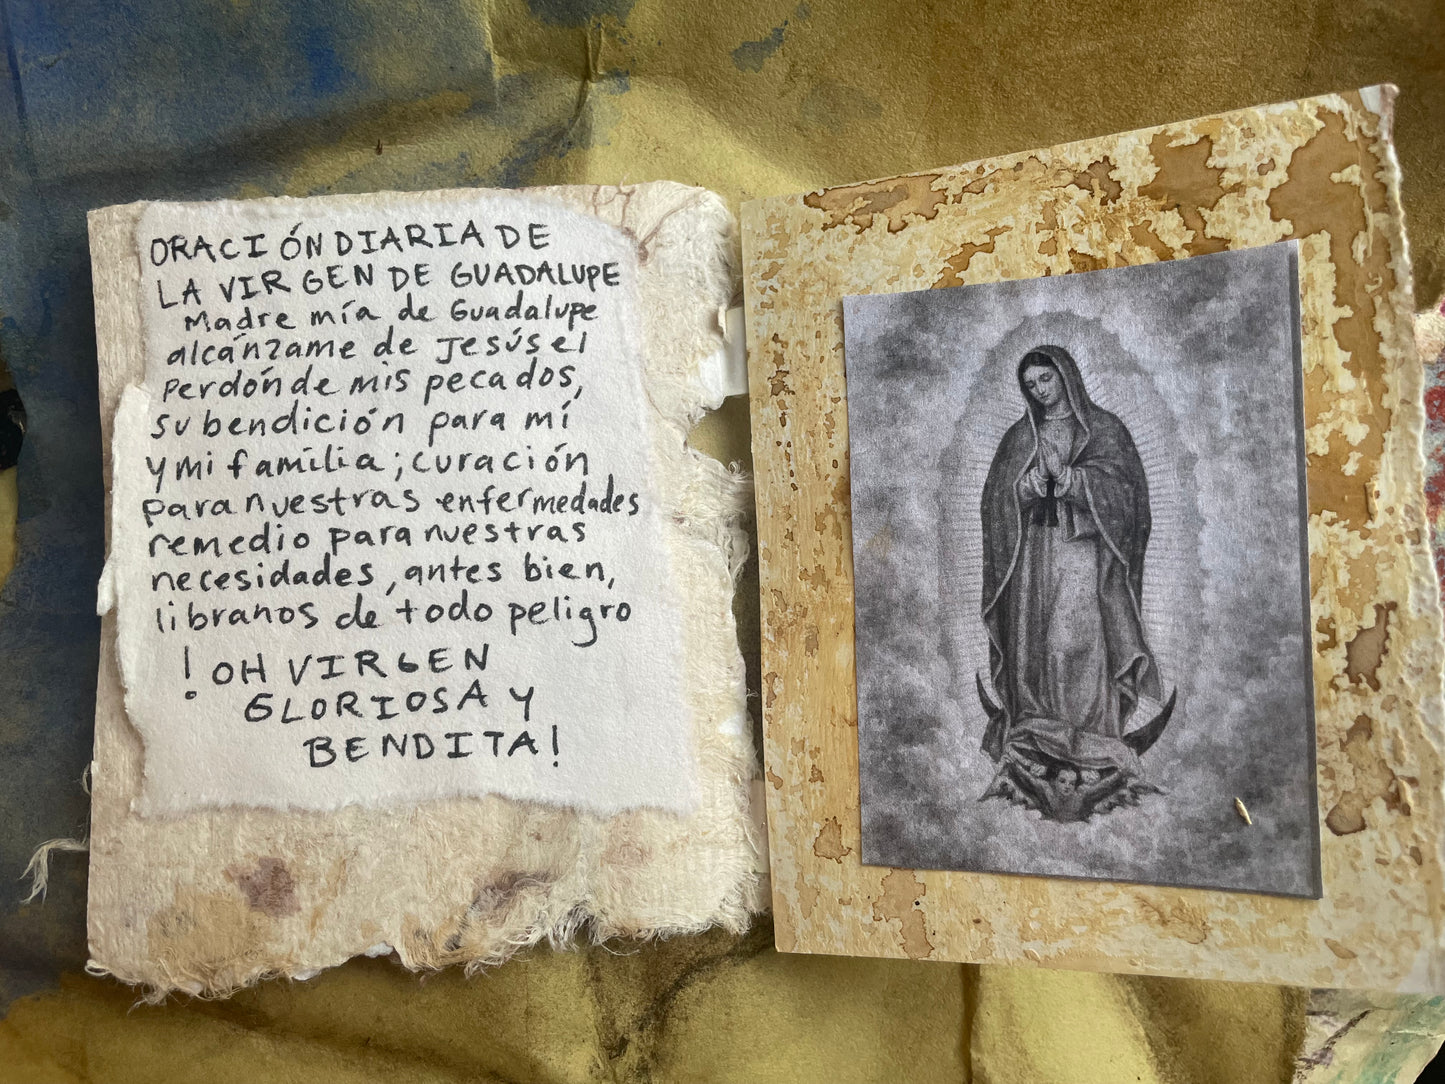 ORACIÓN DIARIA DE
LA VIRGEN DE GUADALUPE
Madre mía de Guadalupe
alcánzame de Jesús el
Perdón de mis pecados,
su bendición para mí
y mi familia; curación
para nuestras enfermedades
remedio para nuestras
necesidades, antes bien,
libranos de todo peligro
! OH VIRGEN
GLORIOSA Y
BENDITA!